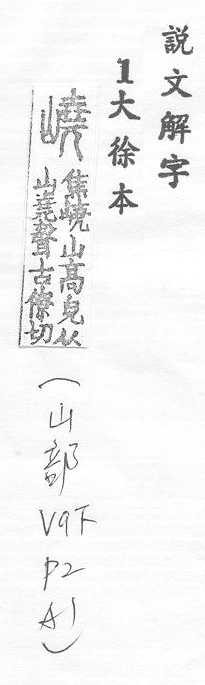 說文解字
1大徐本
嶢 焦嶢山高皃从
山堯聲古僚切
(山部
V9下
P2
A1)